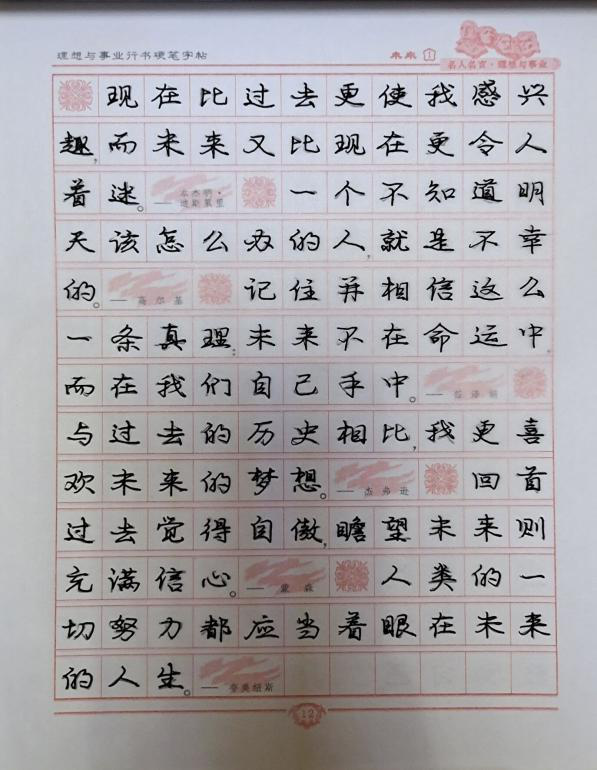 理想与事业行书硬笔字帖 未来 1
名人名言·理想与事业
现在比过去更使我感兴
趣,而未来又比现在更令人
着迷。——本杰明·迪斯累里 一个不知道明
天该怎么办的人,就是不幸
的。——高尔基 记住并相信这么
一条真理:未来不在命运中,
而在我们自己手中。——
与过去的历史相比,我更喜
欢未来的梦想。——杰弗逊 回首
过去觉得自傲,瞻望未来则
充满信心。——蒙森 人类的一
切努力都应当着眼在未来
的人生。——夸美纽斯
12